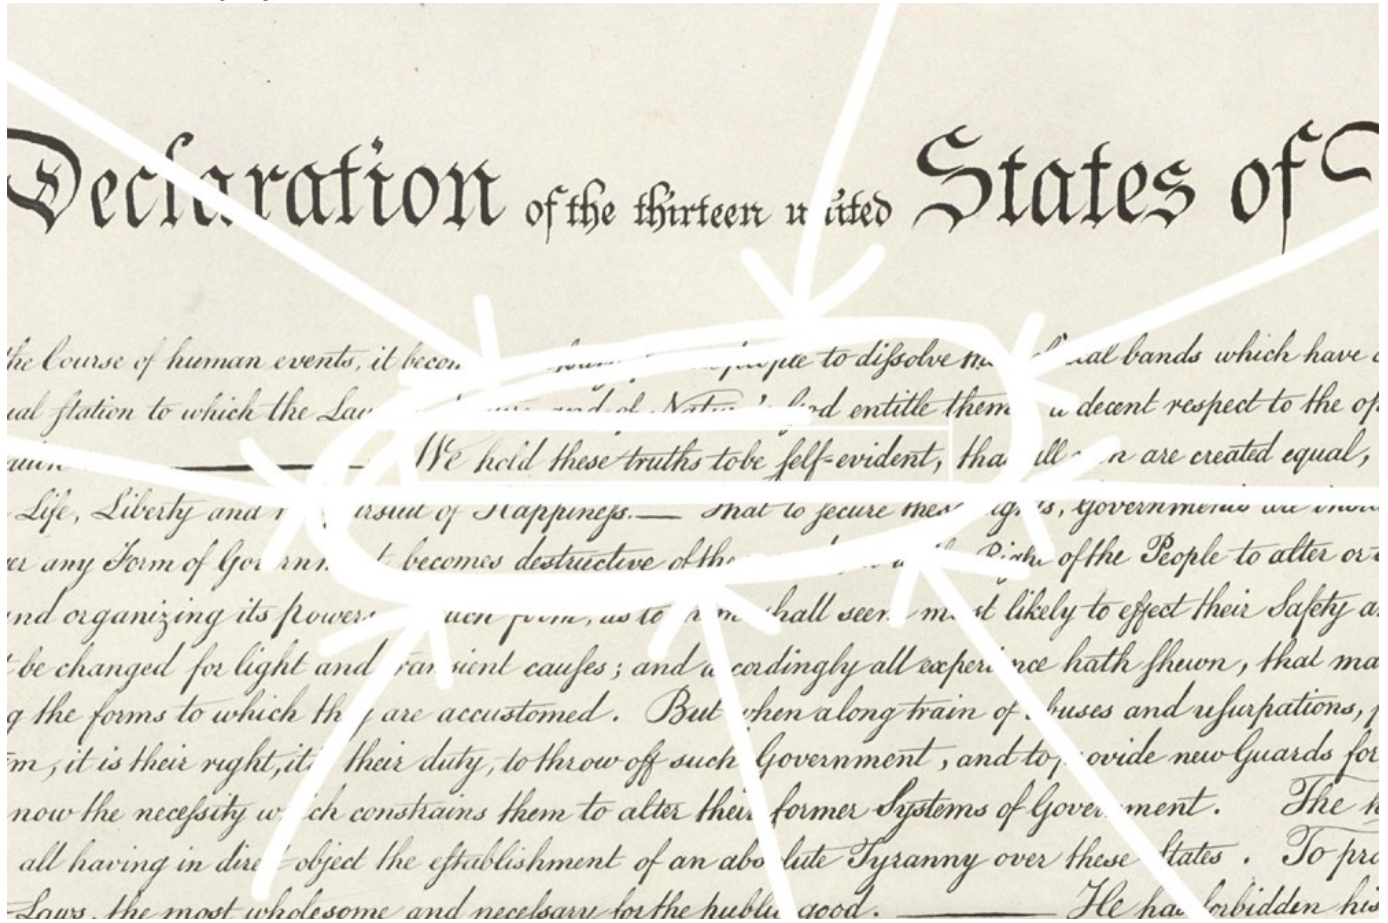 Declaration of the thirteen united States of
the Course of human events, it to dissolve bands which have
ual station to which the entitle them a decent respect to the
We hold these truths tobe self-evident, that all men are created equal,
Life, Liberty and of Happiness.— these
any Form of becomes destructive of the Right of the People to alter or
and organizing its powers form, as to shall seem most likely to effect their Safety
be changed for light and transient causes; and accordingly all experience hath shewn, that
the forms to which they are accustomed. But when along train of abuses and usurpations,
it is their right, it is their duty, to throw off such Government, and to provide new Guards for
now the necessity which constrains them to alter their former Systems of Government. The
all having in direct object the establishment of an absolute Tyranny over these States. To
Laws, the most wholesome and necessary for the public good. — He has forbidden his